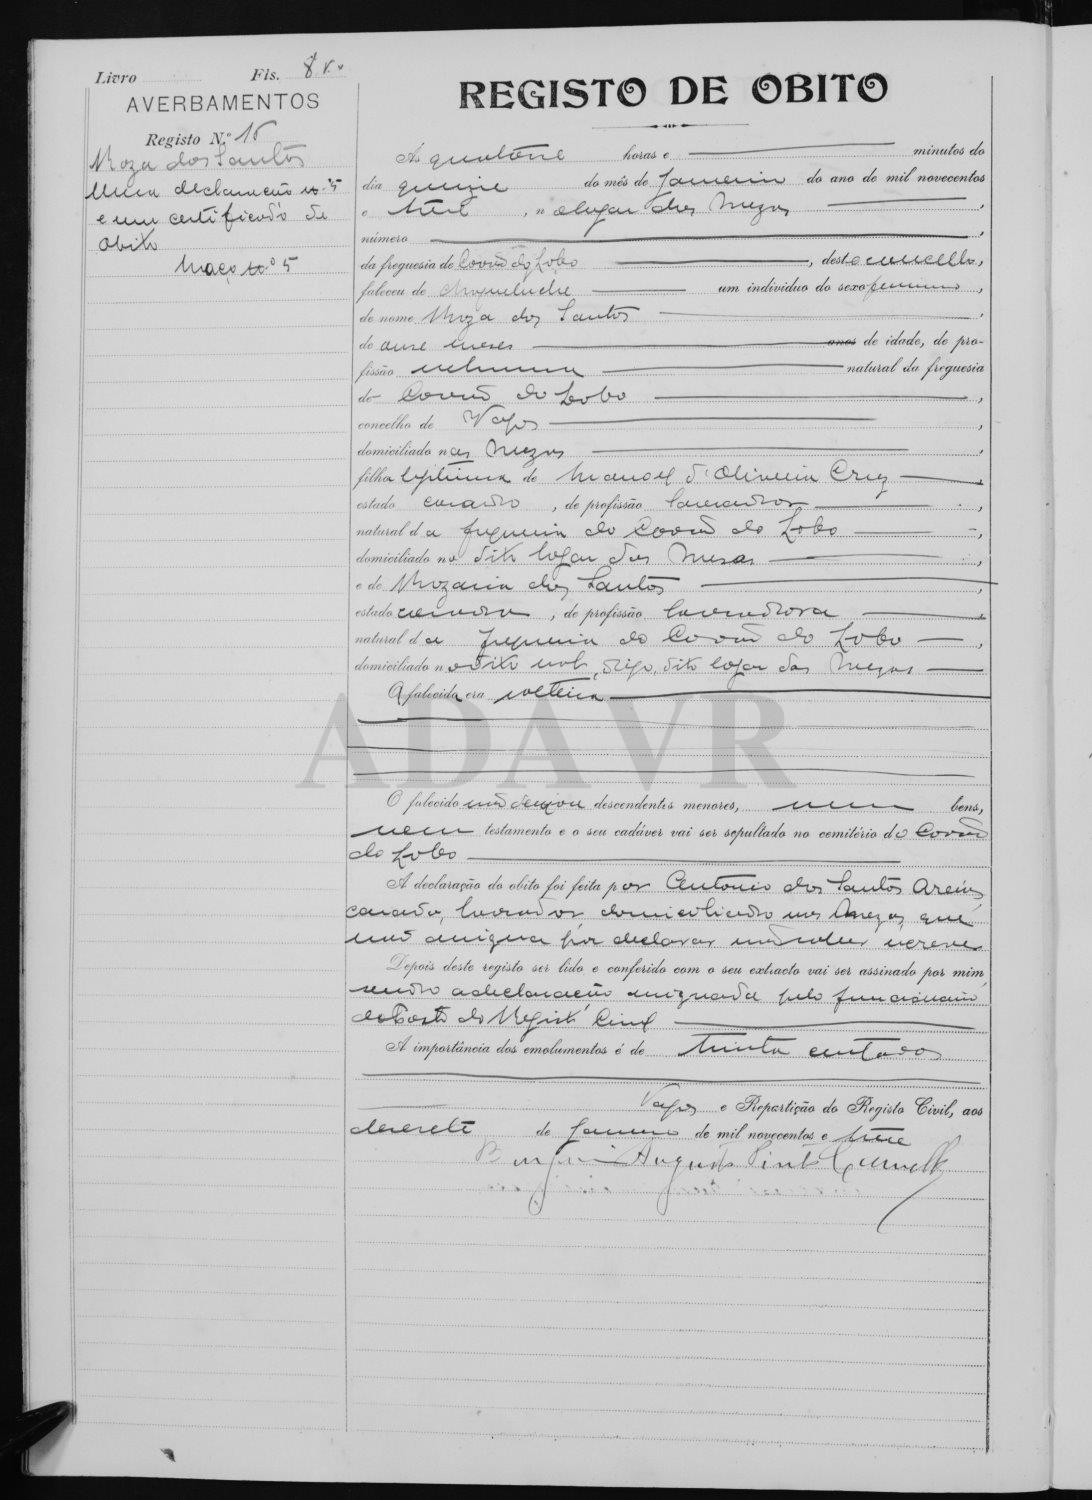 Livro Fls. 8 v.º
AVERBAMENTOS
Registo N.º 15
Roza dos Santos
Uma declaração n.º 5
e um certificado de
obito
Maço n.º 5
REGISTO DE OBITO
Ás quatorze horas e minutos do
dia quinze do mês de Janeiro do ano de mil novecentos
e treze, n o lugar das Mezas,
número
da freguesia de Covão do Lobo, deste concelho,
faleceu de coqueluche um individuo do sexo feminino,
de nome Roza dos Santos,
de onze meses anos de idade, de pro-
fissão nehuma natural da freguesia
de Covão do Lobo,
concelho de Vagos,
domiciliado nas Mezas,
filha legitima de Manoel d'Oliveira Cruz,
estado casado, de profissão lavrador,
natural da freguesia do Covão do Lobo,
domiciliado no dito logar das Mesas,
e de Rozaria dos Santos,
estado casada, de profissão lavradora,
natural da freguesia do Covão do Lobo,
domiciliado no dito digo, dito logar das Mezas
A falecida era solteira
O falecido não deixou descendentes menores, nem bens,
nem testamento e o seu cadáver vai ser sepultado no cemitério do Covão
do Lobo
A declaração do obito foi feita por Antonio dos Santos
casado, lavrador domiciliado nas Mezas, que
não assigna por declarar não saber escrever
Depois deste registo ser lido e conferido com o seu extracto vai ser assinado por mim
sendo a declaração assignada pelo funcionario
do Posto do Registo Civil
A importância dos emolumentos é de trinta centavos
Vagos e Repartição do Registo Civil, aos
dezesete de Janeiro de mil novecentos e treze
Augusto Pinto
ADAVR